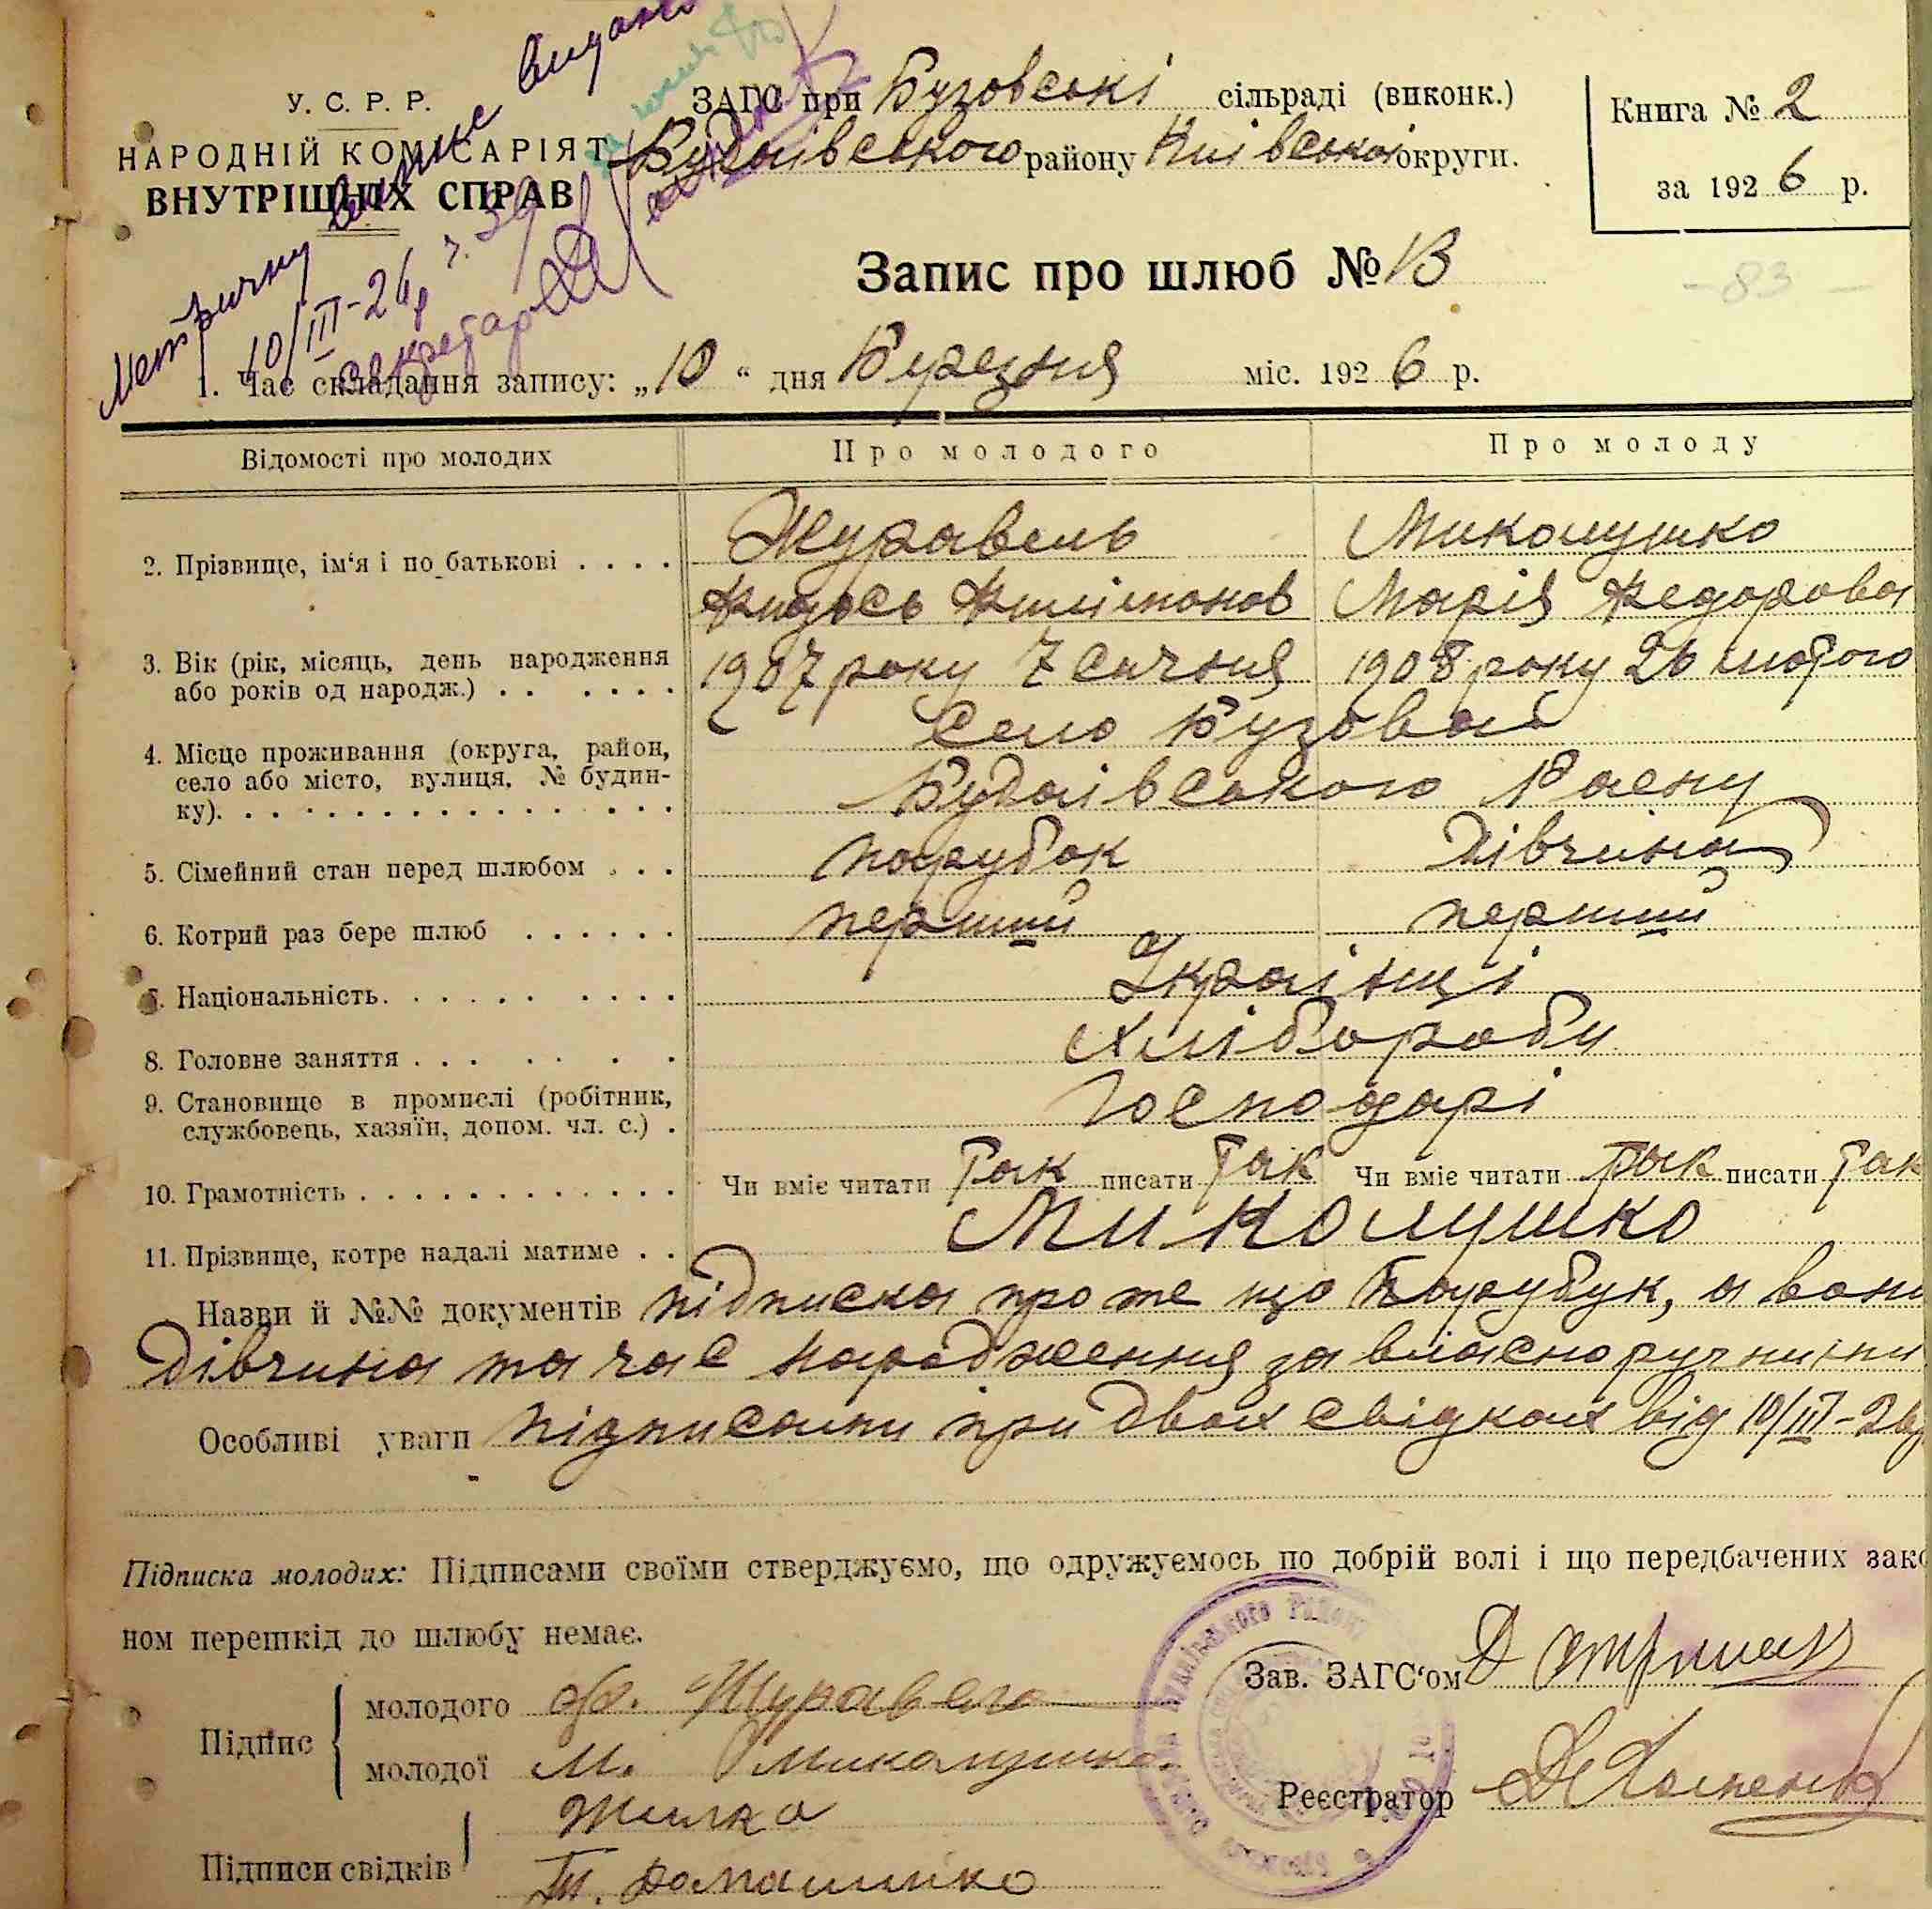 Метричну виписс видано
10/III-26р. ч. 39
Секретар
У. С. Р. Р.
НАРОДНІЙ КОМІСАРІЯТ
ВНУТРІШНІХ СПРАВ
ЗАГС при Бузовські сільраді (виконк.)
Будаівського району Киівської округи.
Книга № 2
за 1926 р.
Запис про шлюб № 13
- 83 -
1. Час складання запису: „10“ дня Березня міс. 1926 р.
Відомості про молодих Про молодого Про молоду
2. Прізвище, ім‘я і по батькові . . . . Журавель Миколушко
Филимонов Марія Федорова
3. Вік (рік, місяць, день народження 1907 року 7 Січня 1908 року 26 лютого
або років од народж.) . . . . . .
4. Місце проживання (округа, район, Село Бузова
село або місто, вулиця, № будин- Будаівського Раену
ку). . . . . . . . . . . . . . .
5. Сімейний стан перед шлюбом . . . парубок дівчина
6. Котрий раз бере шлюб . . . . . . перший перший
7. Національність. . . . . . . . . . Украінці
8. Головне заняття . . . . . . . . Хлібороби
9. Становище в промислі (робітник, Господарі
службовець, хазяїн, допом. чл. с.) .
10. Грамотність . . . . . . . . . . . . . Чи вміє читати Так писати Так Чи вміє читати Так писати Так
11. Прізвище, котре надалі матиме . . Миколушко
Назви й №№ документів підписка про те що Парубук, а вона
дівчина та час народження за власноручними
Особливі уваги підписами при двох свідках від 10/III-26р
Підписка молодих: Підписами своїми стверджуємо, що одружуємось по добрій волі і що передбачених зако
ном перешкід до шлюбу немає.
Підпис молодого Журавель
молодої М. Миколушко
Зав. ЗАГС‘ом
Реєстратор
Підписи свідків Жилко